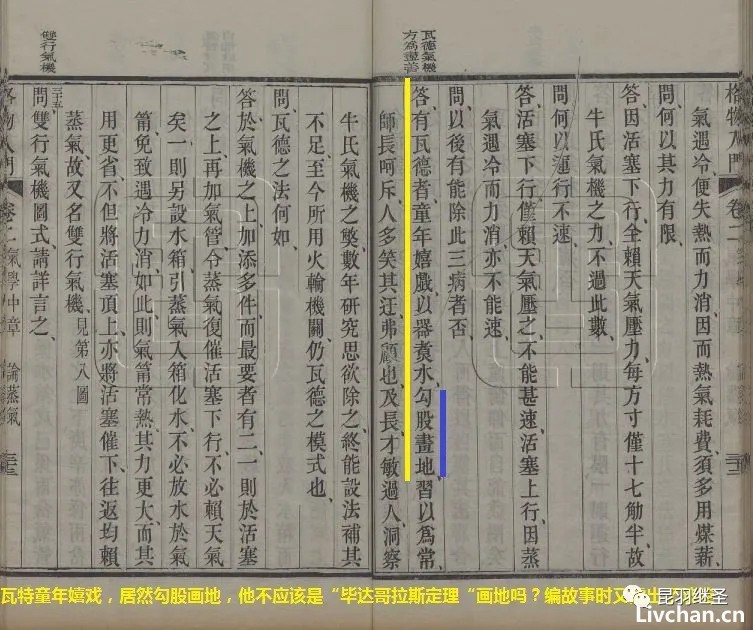 格物入門 卷二
氣遇冷便失熱而力消因而熱氣耗費須多用煤薪
問何以其力有限
答因活塞下行全賴天氣壓力每方寸僅十七觔半故
牛氏氣機之力不過此數
問何以運行不速
答活塞下行僅賴天氣壓之不能甚速活塞上行因蒸
氣遇冷而力消亦不能速
問以後有能除此三病者否
瓦德氣機
方爲盡善
答、有瓦德者、童年嬉戲、以器煑水、勾股畫地、習以爲常、
師長呵斥、人多笑其迂、弗顧也、及長才敏過人、洞察
牛氏氣機之獘、數年研究、思欲除之、終能設法補其
不足、至今所用火輪機關、仍瓦德之模式也、
問、瓦德之法何如、
答、於氣機之上、加添多件、而最要者有二、一則於活塞
之上、再加氣管、令蒸氣復催活塞下行、不必賴天氣
矣、一則另設水箱、引蒸氣入箱化水、不必放水於氣
筩、免致遇冷力消、如此則氣筩常熱、其力更大、而其
用更省、不但將活塞頂上、亦將活塞催下、往返均賴
蒸氣、故又名雙行氣機、見第八圖
雙行氣機
三十五、
問、雙行氣機圖式、請詳言之、
格物入門 卷二 氣學中章 論蒸氣
瓦特童年嬉戏，居然勾股画地，他不应该是“毕达哥拉斯定理“画地吗？编故事时又
昆羽继圣
Livchan.cn